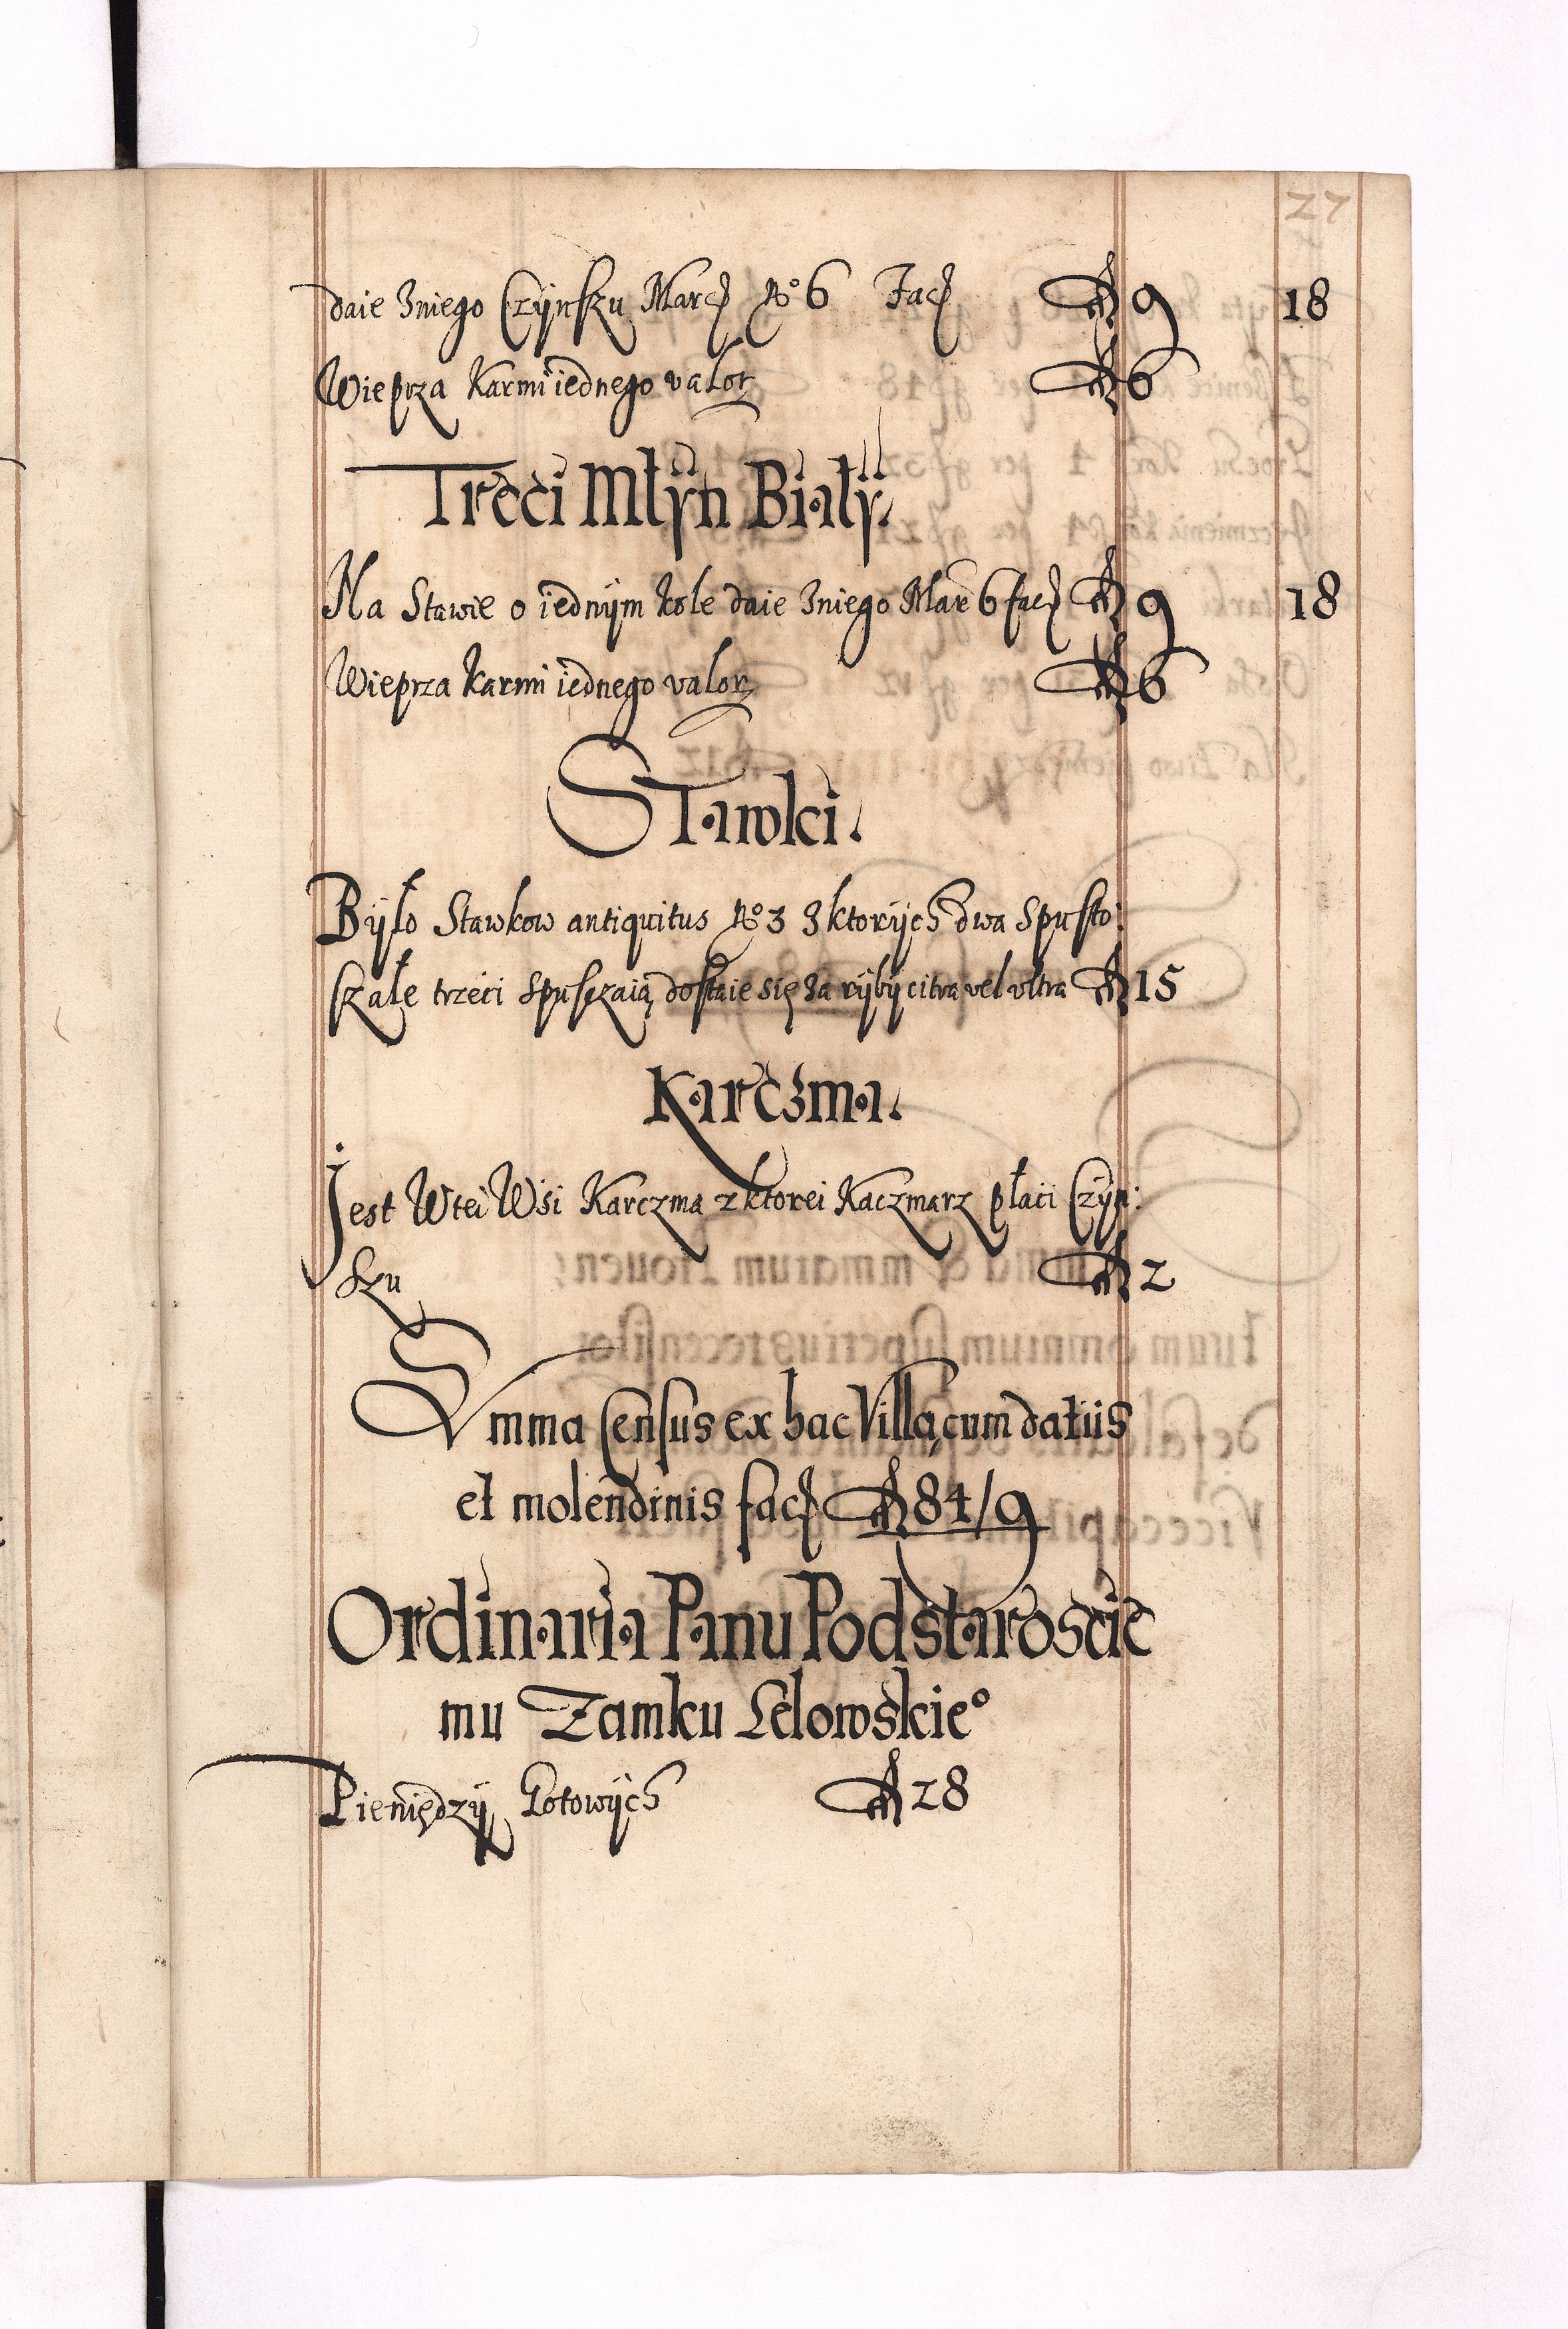 27
daie zniego Czÿnszu Marcȝ No 6 Facȝ ƒ 9 18
Wieprza Karmi iednego valor ƒ 6
Treci Młÿn Biały.
Na Stawie o iednÿm kole daie zniego Mar 6 facȝ ƒ 9 18
Wieprza karmi iednego valor ƒ 6
Stawki.
Bÿło Stawkow antiquitus No 3 z ktorÿch dwa spusto:
szałe trzeci spusczaią dostaie się za rÿbÿ citra vel vltra ƒ 15
Karczma.
Jest Wtei Wsi Karczma z ktorei Kaczmarz płaci Czÿn:
szu ƒ 2
Summa Census ex hac Villa, cum datiis
et molendinis facȝ ƒ 84/9
Ordinaria Panu Podstaroscie
mu Zamku Lelowskieo
Pieniędzÿ Gotowÿch ƒ 28